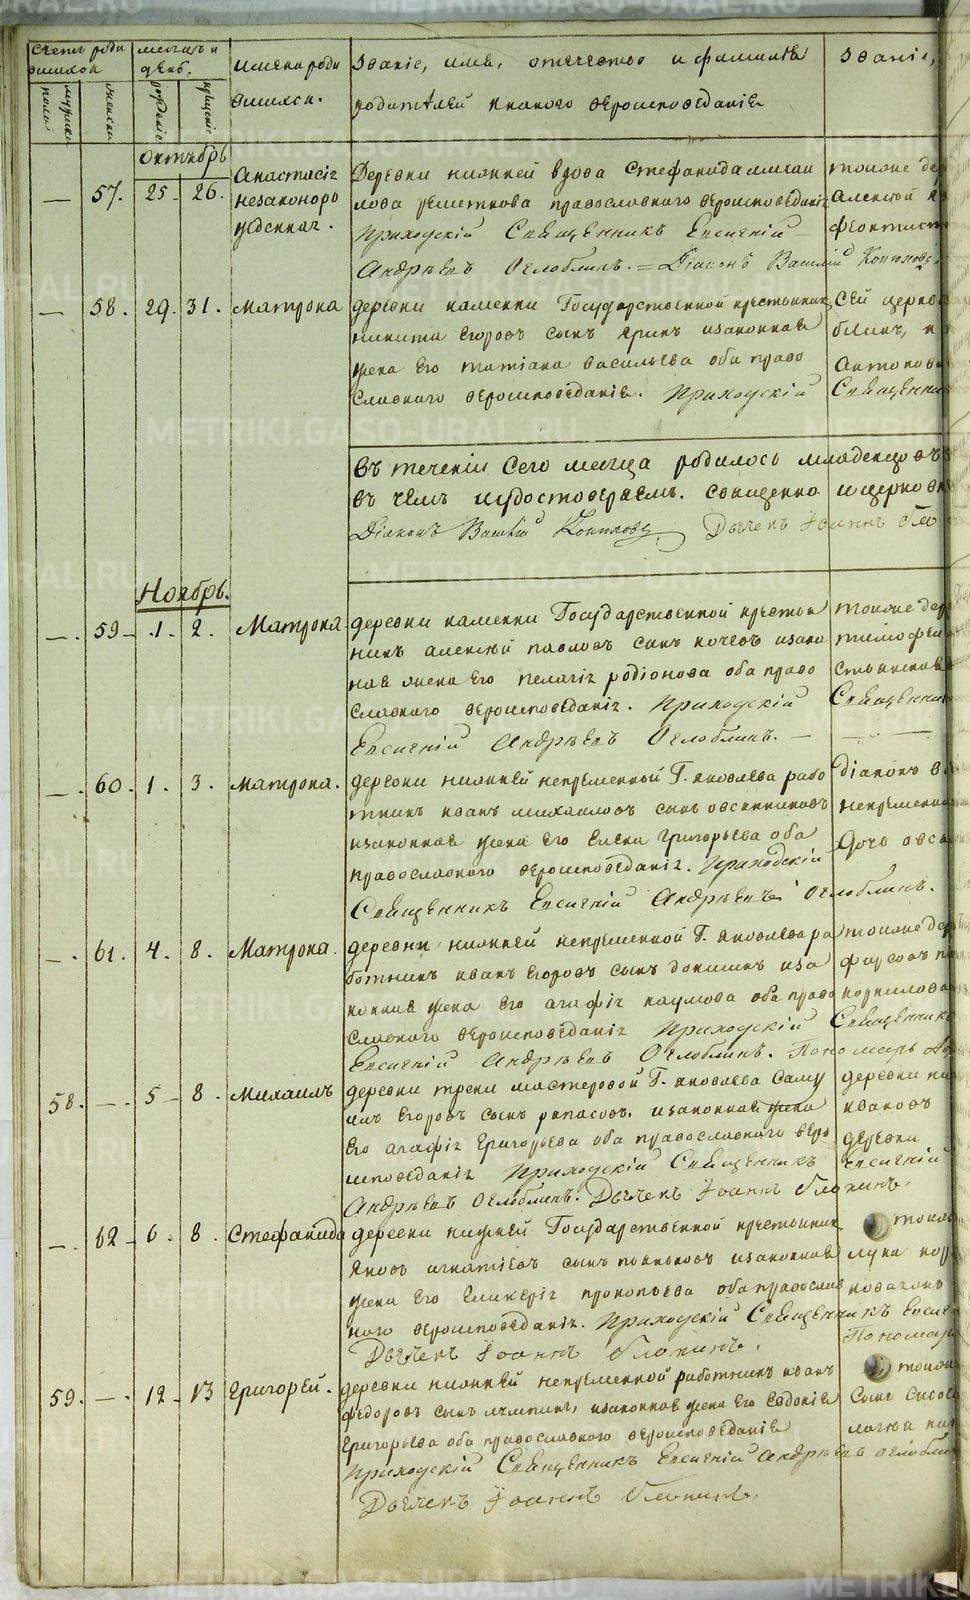 Счетъ роди
вшихся
мужеска
пола
женска
месяцъ и
день.
рожденіе
крщеніе
имена роди
вшихся.
Званіе, имя, отечество и фамилія
родителей и какого вероисповеданія
Званіе,
Октябрь
— 57. 25 - 26. Анастасія
незаконоро
жденная.
Деревни нижней вдова Стефанида михаи
лова решеткова православнаго вероисповеданія
Приходскій Священникъ Евсигній
Андреевъ Оглоблинъ. = Діаконъ Василій Копиловъ.
тоиже дер
Алексей
феоктист
— 58. 29. 31. Матрона
деревни каменки Государственной крестьянинъ
никита Егоровъ сынъ Яринъ изаконная
жена Его татіана васильева оба право
славнаго вероисповеданія. Приходскій Священни
Сей церкв
блинъ, и
Антонова
въ теченіи Сего месяца родилось младенцовъ
въ чемъ иудостоверяемъ. священно и церковн
Діаконъ Василій Копиловъ Дьячекъ Іоаннъ Гла
Ноябрь.
— . 59 - .1 - 2. Матрона
деревни каменки Государственной крестья
нинъ алексій павловъ сынъ кочевъ изако
ная жена Его пелагія родіонова оба право
славнаго вероисповеданія. Приходскій Священни
Евсигній Андреевъ Оглоблинъ. —
тоиже дер
тимофеи
стьянская
— . 60. 1. 3. Матрона.
деревни нижней непременной Г. яковлева рабо
тникъ иванъ михаиловъ сынъ овсянниковъ
изаконная жена Его Елена Григорьева оба
православнаго вероисповеданія. Приходскій
Священникъ Евсигній Андреевъ Оглоблинъ.
діаконъ ва
непременна
дочь овся
— . 61. 4. 8. Матрона.
деревни нижней непременной Г. яковлева ра
ботникъ иванъ Егоровъ сынъ докинъ иза
конная жена Его агафія наумова оба право
славнаго вероисповеданія Приходскій Священникъ
Евсигній Андреевъ Оглоблинъ. Пономарь
тоиже дер
фирсовъ
корнилова
58. — . 5 - 8. Михаилъ
деревни треки мастеровой Г. яковлева Саму
илъ Егоровъ сынъ рапасовъ. изаконная жена
Его агафія Григорьева оба православнаго веро
исповеданія Приходскій Священникъ Евсигній
Андреевъ Оглоблинъ. Дьячекъ Іоаннъ Глакинъ.
деревни
ивановъ
деревни
— . 62 - 6. 8. Стефанида
деревни нижней Государственной крестьянин
яковъ игнатіевъ сынъ пьянковъ изаконная
жена Его Гликерія прокопьева оба православ
наго вероисповеданія. Приходскій Священникъ Евсиг
Дьячекъ Іоаннъ Глакинъ. Пономарь
тоиже
лука кор
казакова
59. — . 12 - 13 Григорей.
деревни нижней непременной работникъ иванъ
федоровъ сынъ лямпинъ, изаконная жена Его Евдокія
Григорьева оба православнаго вероисповеданія
Приходскій Священникъ Евсигній Андреевъ Оглоблин
Дьячекъ Іоаннъ Глакинъ.
тоиже
Сынъ